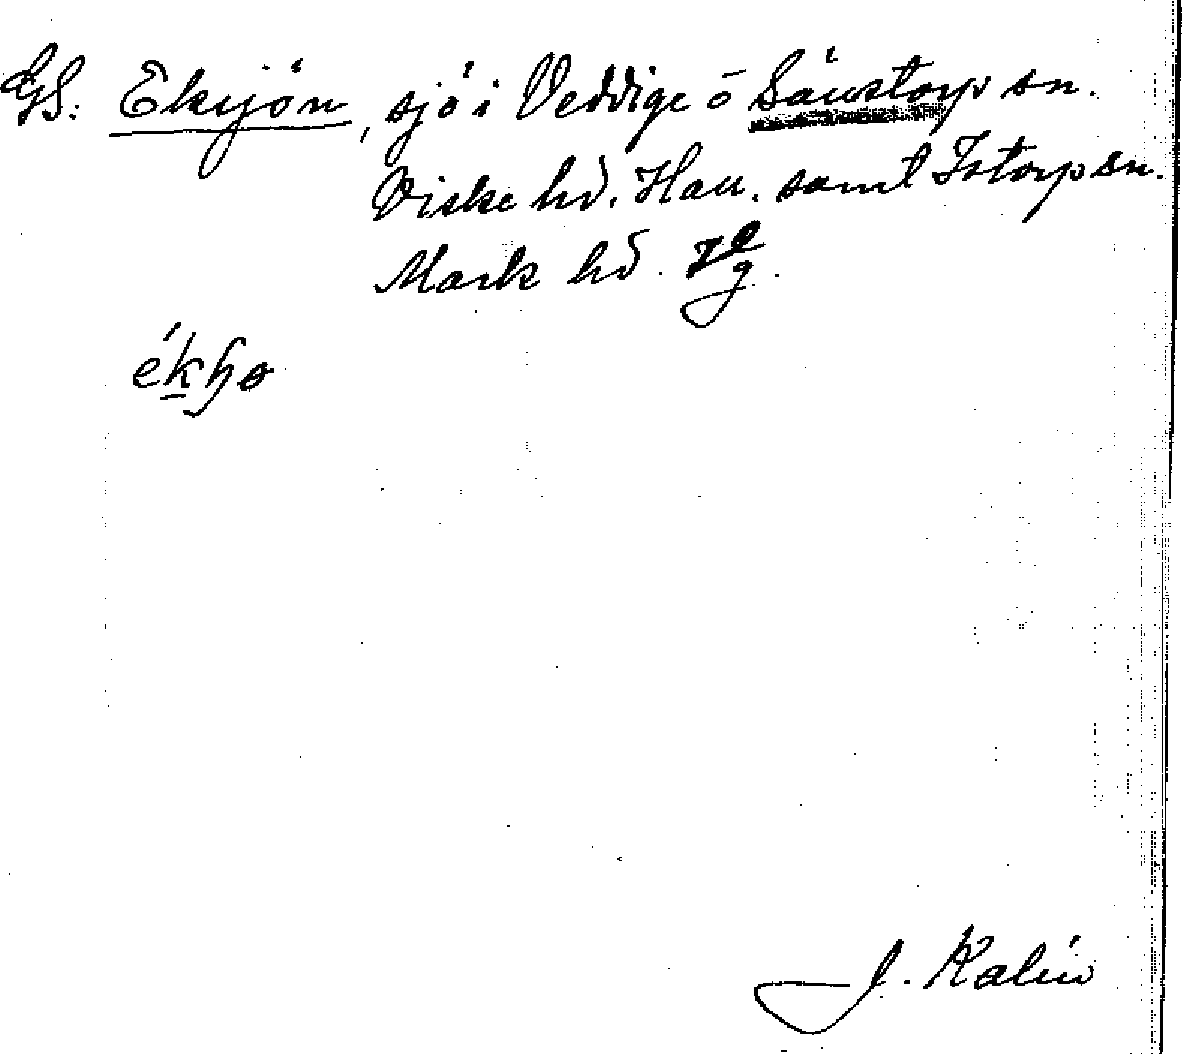 GS: Eksjön, sjö i Veddige o Sällstorp sn.
Viske hd. Hall. samt Istorp sn.
Mark hd.
J. Kalén